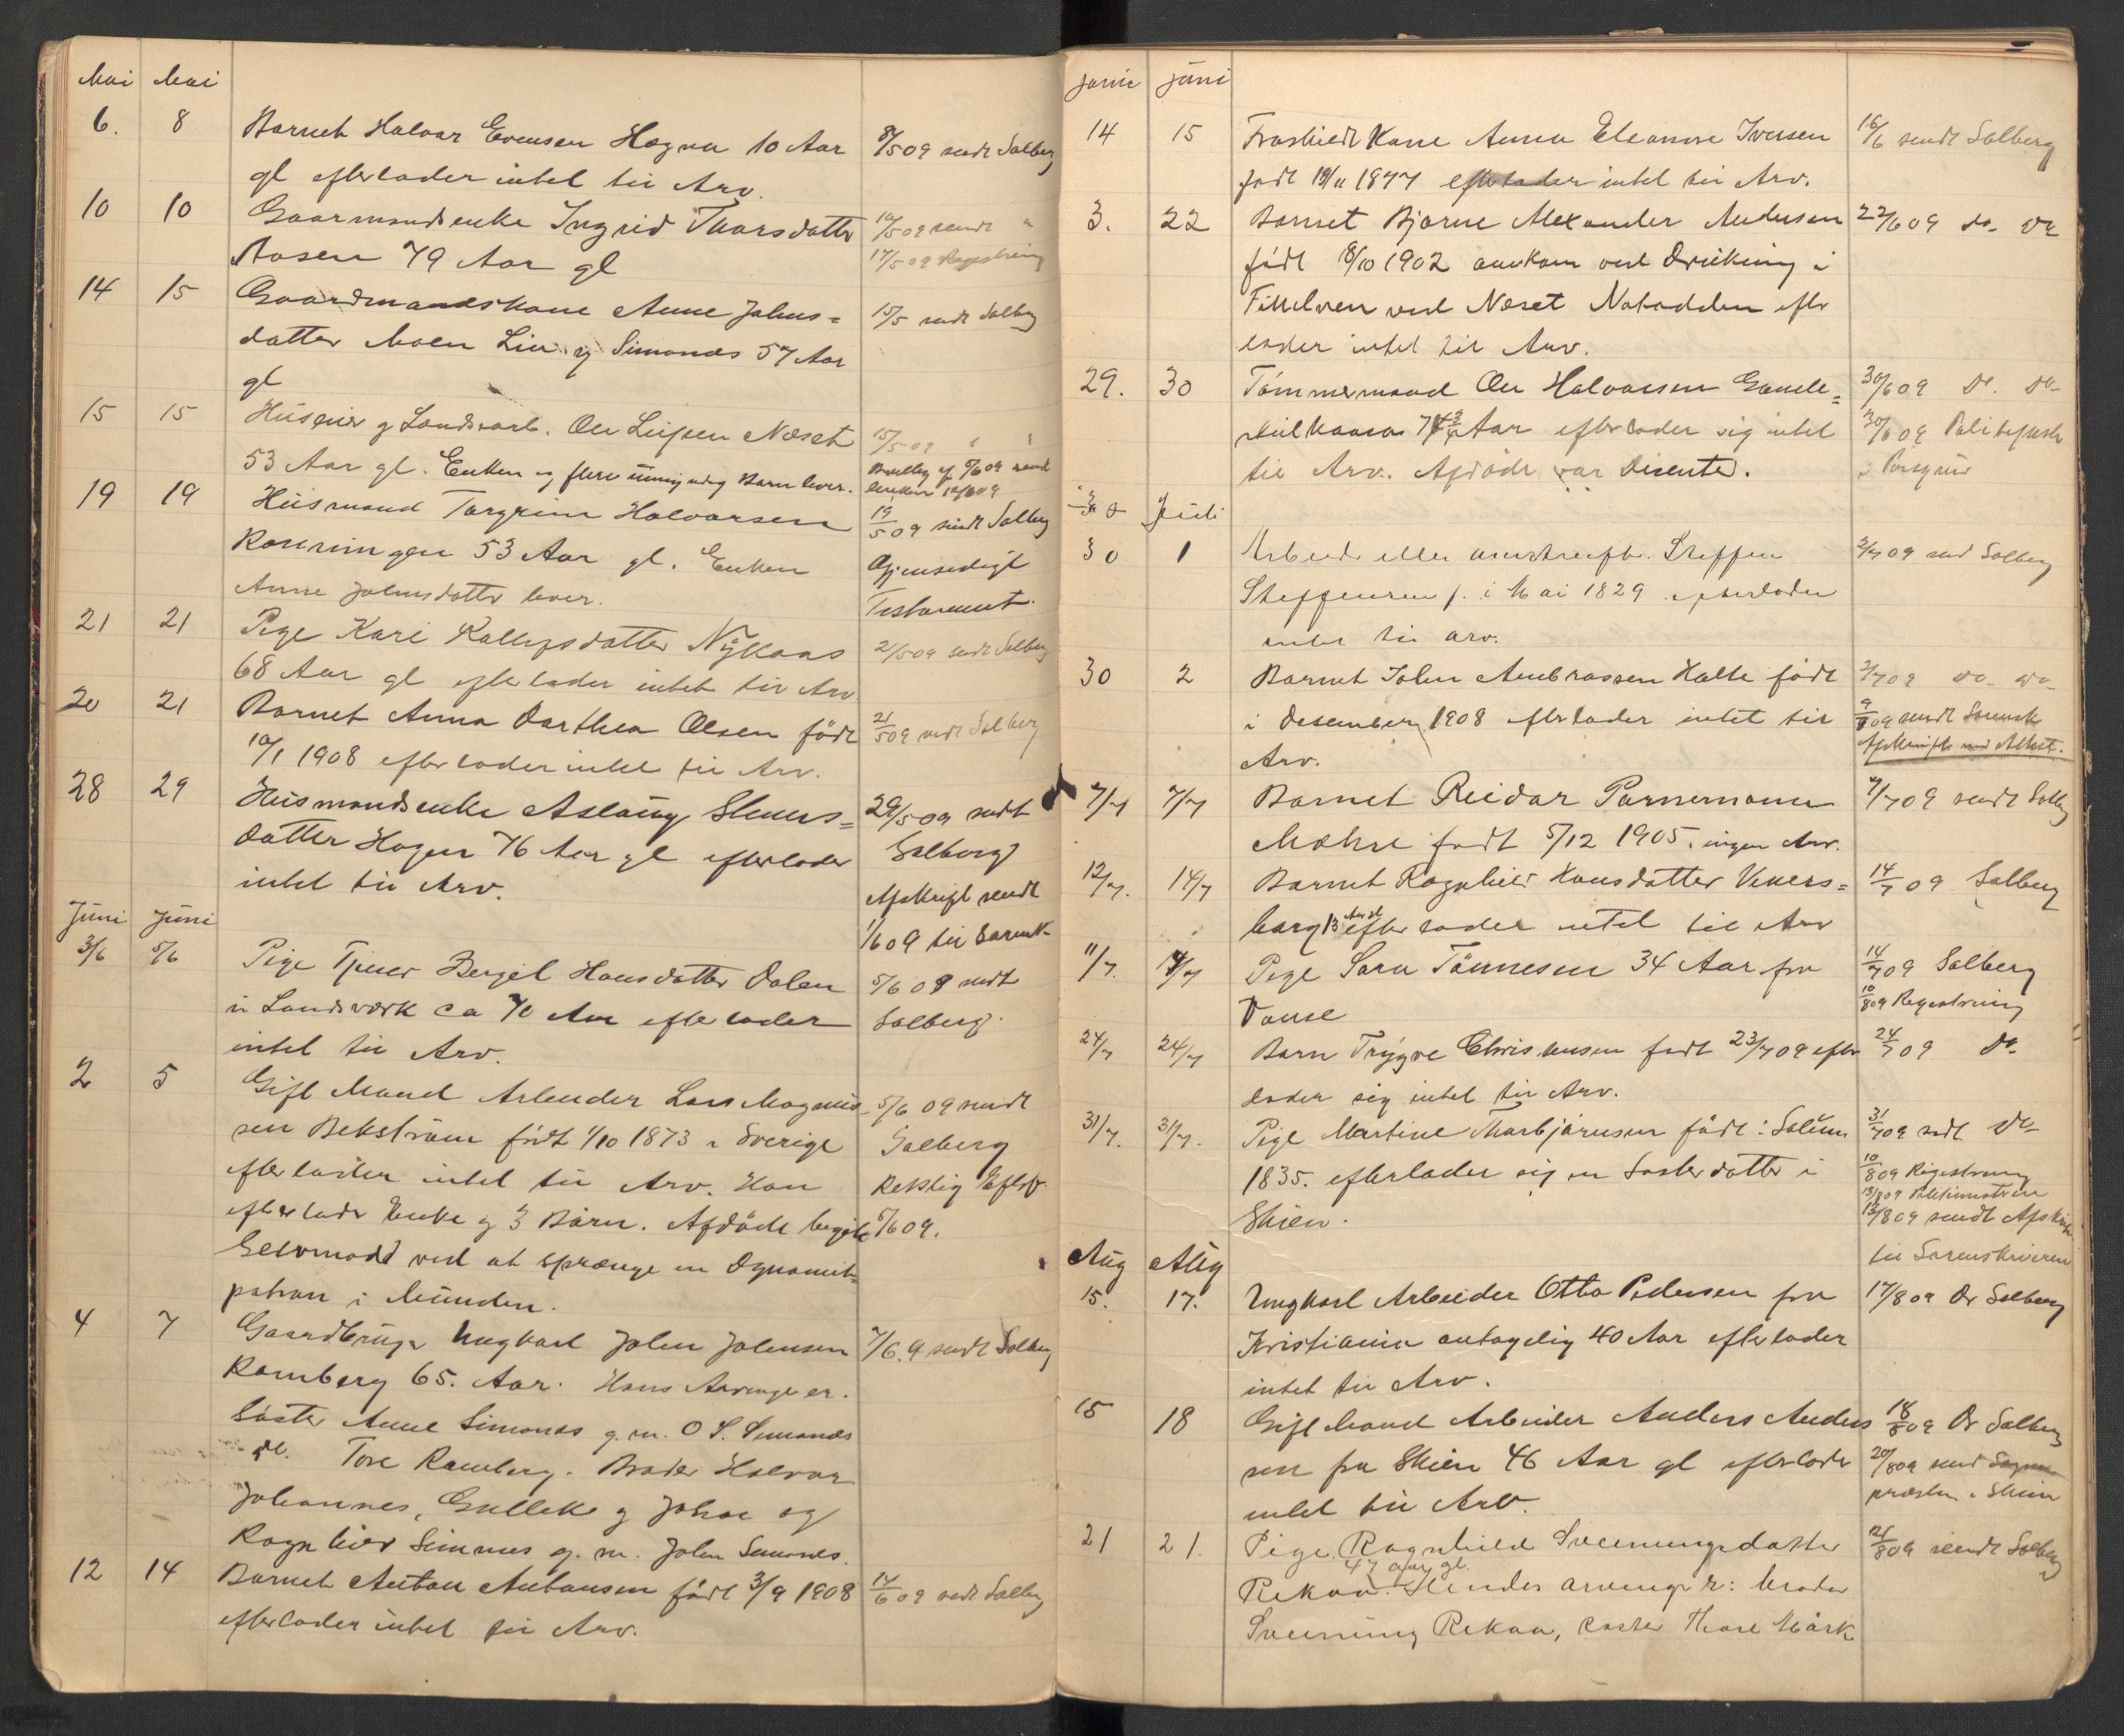 Mai Mai
6. 8 Barnet Halvor Evensen Hagna 10 Aar 8/5 09 sendt Salberg
gl efterlader intet til Arv.
10 10 Gaarmandsenke Ingrid Thorsdatter 10/5 09 sendt "
Aasen 79 Aar gl 17/5 09 Registrering
14 15 Gaardmandskone Anne Johns= 15/5 sendt Salberg
datter Moen Lien g Simones 57 Aar
gl
15 15 Huseier g Landsarb. Ole Leifsen Næset 15/5 09 " "
53 Aar gl. Enken og flere umyndig Barn lever.
19 19 Husmand Torgrim Halvorsen 19/5 09 sendt Salberg
53 Aar gl. Enken Gjensedigt
Anne Johnsdatter lever. Testament.
21 21 Pige Kari Kallefsdatter Nykaas 21/5 09 sendt Salberg
68 Aar gl efterlader intet til Arv
20 21 Barnet Anna Darthea Olsen født 21/5 09 sendt Salberg
10/1 1908 efterlader intet til Arv.
28 29 Husmandsenke Aslaug Steners= 29/5 09 sendt
datter Hagen 76 Aar gl efterlader Salberg
intet til Arv. Afskrift sendt
1/6 09 til Sorensk
Juni Juni
3/6 5/6 Pige Tjener Bergit Hansdatter Dalen 5/6 09 sendt
i Landsværk ca 70 Aar efterlader Salberg.
intet til Arv.
2 5 Gift Mand Arbeider Lars Magnus- 5/6 09 sendt
sen Bekstrøm født 1/10 1873 i Sverige Salberg
efterlader intet til Arv. Han
efterlader Enke g 3 Børn. Afdøde begik 5/6 09.
Selvmord ved at sprænge en Dynamit=
patron i Munden.
4 7 Gaardbruger Ungkarl John Johnsen 7/6.9 sendt Salberg
Ramberg 65. Aar. Hans Arvinger er.
Søster Anne Simones g. m. O S. Simones
Tore Ramberg. Broder Halvor
Johannes, Gullek g Johan og
Ragnhild Simones g. m. John Simones.
12 14 Barnet Anton Antonsen født 3/9 1908 14/6 09 sendt Salberg
efterlader intet til Arv.
Juni Juni
14 15 Fraskilt Kone Anna Eleonore Iversen 16/6 sendt Salberg
født 19/11 1877 efterlader intet til Arv.
3. 22 Barnet Bjarne Alexander Andersen 22/6 09 do- do
født 18/10 1902 omkom ved Drukning i
ved Næset Notodden efter
lader intet til Arv.
29. 30 Tømmermand Ole Halvorsen Gamle= 30/6 09 do. do-
Aar efterlader sig intet 30/6 09
til Arv. Afdøde var Disenter. i Porsgrund
30 Juli
30 1 Arbeider eller Steffen 2/7 09 send Salberg
Steffensen f. i Mai 1829 efterlader
intet til arv.
30 2 Barnet John Ambrossen Halte født 2/7 09 do- do-
i Desember 1908 efterlader intet til 9/8 09 sendt Sorensk
Arv. Afskrift med Attest.
7/7 7/7 Barnet Reidar Parnemann 7/7 09 sendt Salberg
Mæhre født 5/12 1905. ingen Arv.
12/7. 14/7 Barnet Ragnhild Hansdatter Vikers= 14/7 09 Salberg
berg 13 Aar gl efterlader intet til Arv
11/7. 14/7 Pige Sara Tønnesen 34 Aar fra 14/7 09 Salberg
Vanse 10/8 09 Registrering
24/7 24/7 Barn Trygve Christensen født 23/7 09 efter 24/7 09 do-
lader sig intet til Arv.
31/7. 31/7. Pige Martine Thorbjørnsen født i Solum 31/7 09 sendt do-
1835. efterlader sig en Søsterdatter i 10/8 09 Registrering
Skien. 13/8 09 sendt Afskrift
til Sorenskriveren
Aug Aug
15. 17. Ungkarl Arbeider Otto Pedersen fra 17/8 09 Dr Salberg
Kristiania antagelig 40 Aar efterlader
intet til Arv.
15 18 Gift Mand Arbeider Anders Anders 18/8 09 Dr Salberg
sen fra Skien 46 Aar gl efterlader 20/8 09 send Sogne
intet til Arv. præsten i Skien
21 21. Pige Ragnhild Sveinungsdatter 21/8 09 sendt Salberg
47 aar gl.
Rekaa. Hendes arvinger er: broder
Sveinung Rekaa, søster Thore Mørk